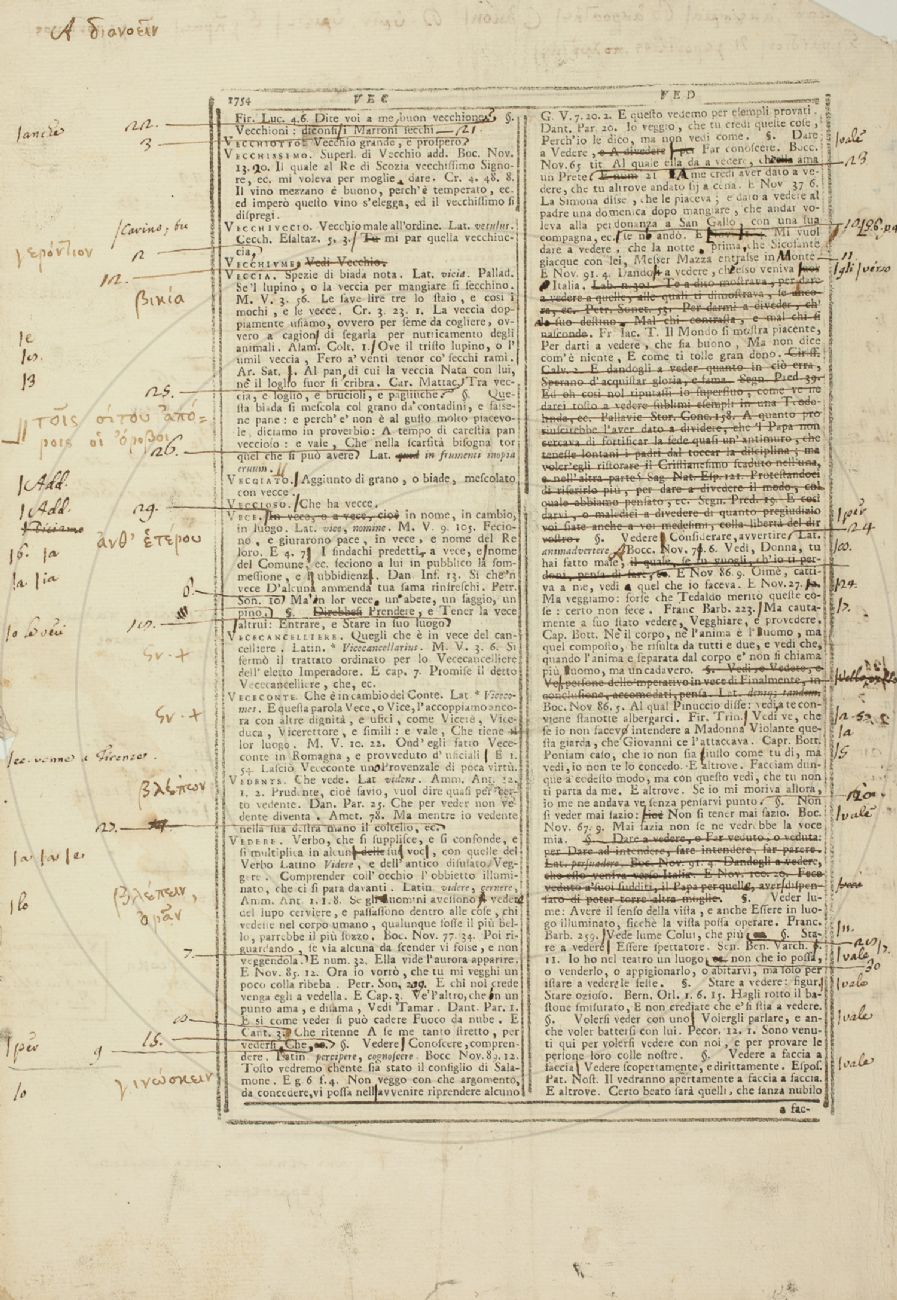 Α διανοεῖν
1754 VEC VED
Fir. Luc. 4. 6. Dite voi a me, buon vecchione? §.
Vecchioni: diconsi Marroni secchi
VECCHIOTTO. Vecchio grande, e prospero.
VECCHISSIMO. Superl. di Vecchio add. Boc. Nov.
13. 20. Il quale al Re di Scozia vecchissimo Signo-
re, ec. mi voleva per moglie dare. Cr. 4. 48. 8.
Il vino mezzano è buono, perch'è temperato, ec.
ed imperò questo vino s'elegga, ed il vecchissimo si
dispregi.
VECCHIUCCIO. Vecchio male all'ordine. Lat. vetulus.
Cecch. Esaltaz. 5. 3. Tu mi par quella vecchiuc-
cia,
VECCHIUME. Vedi Vecchio.
VECCIA. Spezie di biada nota. Lat. vicia. Pallad.
Se'l lupino, o la veccia per mangiare si secchino.
M. V. 3. 56. Le fave lire tre lo staio, e così i
mochi, e le vecce. Cr. 3. 23. 1. La veccia dop-
piamente usiamo, ovvero per seme da cogliere, ov-
vero a cagion di segarla per nutricamento degli
animali. Alam. Colt. 1. Ove il tristo lupino, o l'
umil veccia, Fero a' venti tenor co' secchi rami.
Ar. Sat. Al pan di cui la veccia Nata con lui,
nè il loglio fuor si cribra. Car. Mattac. Tra vec-
cia, e loglio, e brucioli, e pagliuche. §. Que-
sta biada si mescola col grano da' contadini, e fasse-
ne pane: e perch'e' non è al gusto molto piacevo-
le, diciamo in proverbio: A tempo di carestia pan
veccioso: e vale, Che nella scarsità bisogna tor
quel che si può avere. Lat. in frumenti inopia
ervum.
VECCIATO. Aggiunto di grano, o biade, mescolato
con vecce.
VECCIOSO. Che ha vecce.
VECE. In vece, o a vece, cioè in nome, in cambio,
in luogo. Lat. vice, nomine. M. V. 9. 103. Fecio-
no, e giurarono pace, in vece, e nome del Re
loro. E 4. 7. I sindachi predetti, a vece, e nome
del Comune, ec. feciono a lui in pubblico la som-
messione, e ubbidienza. Dan Inf. 13. Sì che'n
vece D'alcuna ammenda tua fama rinfreschi. Petr.
Son. 10. Ma'n lor vece un abete, un faggio, un
pino. §. Direbbesi Prendere, e Tener la vece
altrui: Entrare, e Stare in suo luogo
VECECANCELLIERE. Quegli che è in vece del can-
celliere. Latin. * Vicecancellarius. M. V. 3. 6. Si
fermò il trattato ordinato per lo Vececancelliere
dell'eletto Imperadore. E cap. 7. Promise il detto
Vececancelliere, che, ec.
VECECONTE. Che è in cambio del Conte. Lat. * Viceco-
mes. E questa parola Vece, o Vice, l'accoppiamo anco-
ra con altre dignità, e ufici, come Vicerè, Vice-
duca, Vicerettore, e simili: e vale, Che tiene il
lor luogo. M. V. 10. 22. Ond'egli fatto Vece-
conte in Romagna, e provveduto d'uficiali E 1.
54. Lasciò Vececonte uno Provenzale di poca virtù.
VIDENTE. Che vede. Lat videns. Amm. Ant. 32.
1. 2. Prudente, cioè savio, vuol dire quasi per cer-
to vedente. Dan. Par. 25. Che per veder non ve-
dente diventa. Amet. 78. Ma mentre io vedente
nella sua destra mano il coltello, ec.
VEDERE. Verbo, che si supplisce, e si confonde, e
si multiplica in alcun delle sue voci, con quelle del
Verbo Latino Videre, e dell'antico disusato Veg-
gere. Comprender coll'occhio l'obbietto illumi-
nato, che ci si para davanti. Latin videre, cernere,
Amm. Ant. 1. 1. 8. Se gli uomini avessono a vedere
del lupo cerviere, e passassono dentro alle cose, chi
vedesse nel corpo umano, qualunque fosse il più bel-
lo, parrebbe il più sozzo. Boc. Nov. 77. 34. Poi ri-
guardando, se via alcuna da scender vi fosse, e non
veggendola. E num. 32. Ella vide l'aurora apparire.
E Nov. 85. 12. Ora io vorrò, che tu mi vegghi un
poco colla ribeba. Petr. Son, 209. E chi nol crede
venga egli a vedella. E Cap. 3. Ve'l'altro, che in un
punto ama, e disama, Vedi Tamar. Dant. Par. 1.
E sì come veder si può cadere Fuoco da nube. E
Cant. 3. Che ritenne A se me tanto stretto, per
vedersi, Che, ec. §. Vedere Conoscere, compren-
dere. Latin percipere, cognoscere. Bocc Nov. 89. 12.
Tosto vedremo chente sia stato il consiglio di Sala-
mone. E g 6 f. 4. Non veggo con che argomento,
da concedere, vi possa nell'avvenire riprendere alcuno
G. V. 7. 20. 2. E questo vedemo per esempli provati.
Dant. Par. 20. Io veggio, che tu credi queste cose,
Perch'io le dico, ma non vedi come. §. Dare
a Vedere, o A divedere per Far conoscere. Bocc.
Nov. 6. tit. Al quale ella da a vedere, che ella ama
un Prete E num 21 A me credi aver dato a ve-
dere, che tu altrove andato sij a cena. E Nov 37 6.
La Simona disse, che le piaceva; e dato a vedere al
padre una domenica dopo mangiare, che andar vo-
leva alla perdonanza a San Gallo, con una sua
compagna, ec. se ne andò. E Mi vuol
dare a vedere, che la notte prima, che Sicofante
giacque con lei, Messer Mazza entrasse in Monte
E Nov. 91. 4. Dando a vedere, che esso veniva
Italia. Lab. n. 301. Te a dito mostrava, per dare
a vedere a quelle, alle quali ti dimostrava, se anco-
ra, ec. Petr. Sonet. 53. Per darmi a diveder, ch'
al suo destino Mal chi contrasta, e mal chi si
nasconde. Fr. Iac. T. Il Mondo si mostra piacente,
Per darti a vedere, che sia buono, Ma non dice
com'è niente, E come ti tolle gran dono.
Calv. 2. E dandogli a veder quanto in ciò erra,
Sperano d'acquistar gloria, e fama. Segn. Pred 39.
Ed oh così noi riputassi io superfluo, come ve ne
darei tosto a vedere sublimi esempli in una Teodo-
linda, ec. Pallavic Stor. Conc. 158. A quanto pro
riuscirebbe l'aver dato a divedere, che 'l Papa non
cercava di fortificar la sede quasi un'antimuro, che
tenesse lontani i padri dal toccar la disciplina; ma
voler'egli ristorare il Cristianesimo scaduto nell'una,
e nell'altra parte. Sag Nat. Esp. 121. Protestandoci
di riferirlo più, per dare a divedere il modo, col
quale abbiamo pensato, ec. Segn. Pred. 19. E così
darvi, o maledici a divedere di quanto pregiudizio
voi siate anche a voi medesimi, colla libertà del dir
vostro. §. Vedere Considerare, avvertire. Lat.
animadvertere. Bocc. Nov. 79. 6. Vedi, Donna, tu
hai fatto male, il quale, se tu vuogli, ch'io ti per-
doni, pensa di fare, ec. E Nov 86. 9. Oimè, catti-
va a me, vedi a quel che io faceva. E Nov. 27.
Ma veggiamo: forse che Tedaldo meritò queste co-
se: certo non fece. Franc Barb. 223. Ma cauta-
mente a suo stato vedere, Vegghiare, e provedere.
Cap. Bott. Nè il corpo, nè l'anima è l'uomo, ma
quel composto, he risulta da tutti e due, e vedi che,
quando l'anima è separata dal corpo e' non si chiama
più uomo, ma un cadavero. §. Vedi, e Vedete, e
Ve', persone dello imperativo in vece di Finalmente, in
conclusione, accomodati, pensa. Lat. denique tandem.
Boc. Nov 86. 5. Al qual Pinuccio disse: vedi, te con-
viene stanotte albergarci. Fir. Trin. Vedi ve, che
se io non facevo intendere a Madonna Violante que-
sta giarda, che Giovanni ce l'attaccava. Capr. Bott.
Poniam caso, che io non sia giusto come tu di, ma
vedi, io non te lo concedo. E altrove. Facciam dun-
que a codesto modo, ma con questo vedi, che tu non
ti parta da me. E altrove. Se io mi moriva allora,
io me ne andava ve senza pensarvi punto. §. Non
si veder mai sazio: cioè Non si tener mai sazio. Boc.
Nov. 67. 9. Mai sazia non se ne vedrebbe la voce
mia. §. Dare a vedere, o Far veduto, o veduta:
per Dare ad intendere, fare intendere, far parere.
Lat. persuadere. Boc. Nov. 91. 4. Dandogli a vedere,
che esso veniva verso Italia. E Nov. 100. 20. Fece
veduto a' suoi sudditi, il Papa per quelle, aver dispen-
sato di poter torre altra moglie. §. Veder lu-
me: Avere il senso della vista, e anche Essere in luo-
go illuminato, sicchè la vista possa operare. Franc.
Barb. 239. Vede lume Colui, che più §. Sta-
re a vedere: Essere spettatore. Sen. Ben. Varch. 5.
11. Io ho nel teatro un luogo non che io possa,
o venderlo, o appigionarlo, o abitarvi, ma solo per
istare a vedere le feste. §. Stare a vedere: figur.
Stare ozioso. Bern. Orl. 1. 6. 15. Hagli rotto il ba-
stone smisurato, E non crediate che e' si stia a vedere.
§. Volersi veder con uno: Volergli parlare, e an-
che voler battersi con lui. Pecor. 12. 1. Sono venu-
ti qui per volersi vedere con noi, e per provare le
persone loro colle nostre. §. Vedere a faccia a
faccia: Vedere scopertamente, e dirittamente. Espos.
Pat. Nost. Il vedranno apertamente a faccia a faccia.
E altrove. Certo beato sarà quelli, che sanza nubilo
a fac-
anche 22.
3
Carino; bu
γερόντιον
2
12.
βικία
25.
τοῖς σίτου ἀπό-
ροις οἱ ὄροβοι
26.
Add.
Add.
29.
ἀνθ' ἑτέρου
8.
10.
Sv. +
Sv. +
βλέπων
27.
βλέπειν,
ὁρᾶν
7.
10
15.
per 9
γινώσκειν
21
vale
23
11
gli verso
per
24
ec.
24
vale
vale
30
vale
vale
vale